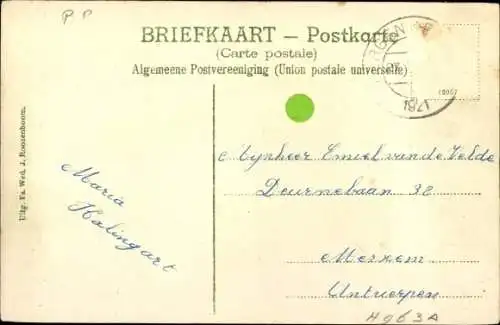 P P
BRIEFKAART – Postkarte
(Carte postale)
Algemeene Postvereeniging (Union postale universelle)
(9056)
Mynheer Emiel van de Velde
Deurnebaan 32
Merxem
Antwerpen
Maria
Halingart
Uitg. Fa. Wed. J. Roozenboom.
H963A